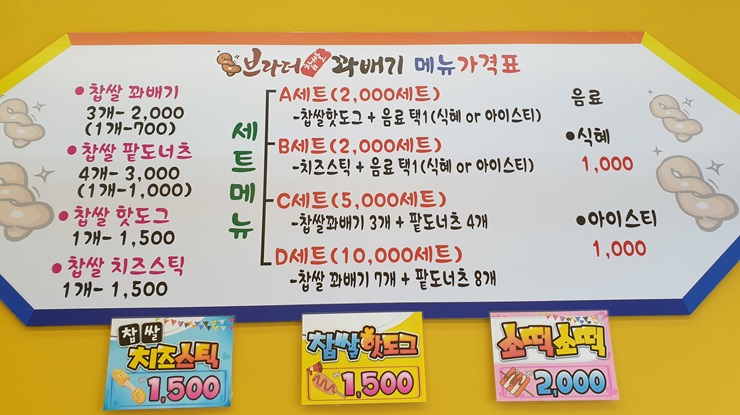 브라더 찹쌀 꽈배기 메뉴가격표
•찹쌀 꽈배기
3개- 2,000
(1개-700)
•찹쌀 팥도너츠
4개- 3,000
(1개-1,000)
•찹쌀 핫도그
1개- 1,500
•찹쌀 치즈스틱
1개- 1,500
세트메뉴
A세트(2,000세트)
-찹쌀핫도그 + 음료 택1(식혜 or 아이스티)
B세트(2,000세트)
-치즈스틱 + 음료 택1(식혜 or 아이스티)
C세트(5,000세트)
-찹쌀꽈배기 3개 + 팥도너츠 4개
D세트(10,000세트)
-찹쌀 꽈배기 7개 + 팥도너츠 8개
음료
•식혜
1,000
•아이스티
1,000
찹쌀
치즈스틱
1,500
찹쌀핫도그
1,500
소떡소떡
2,000